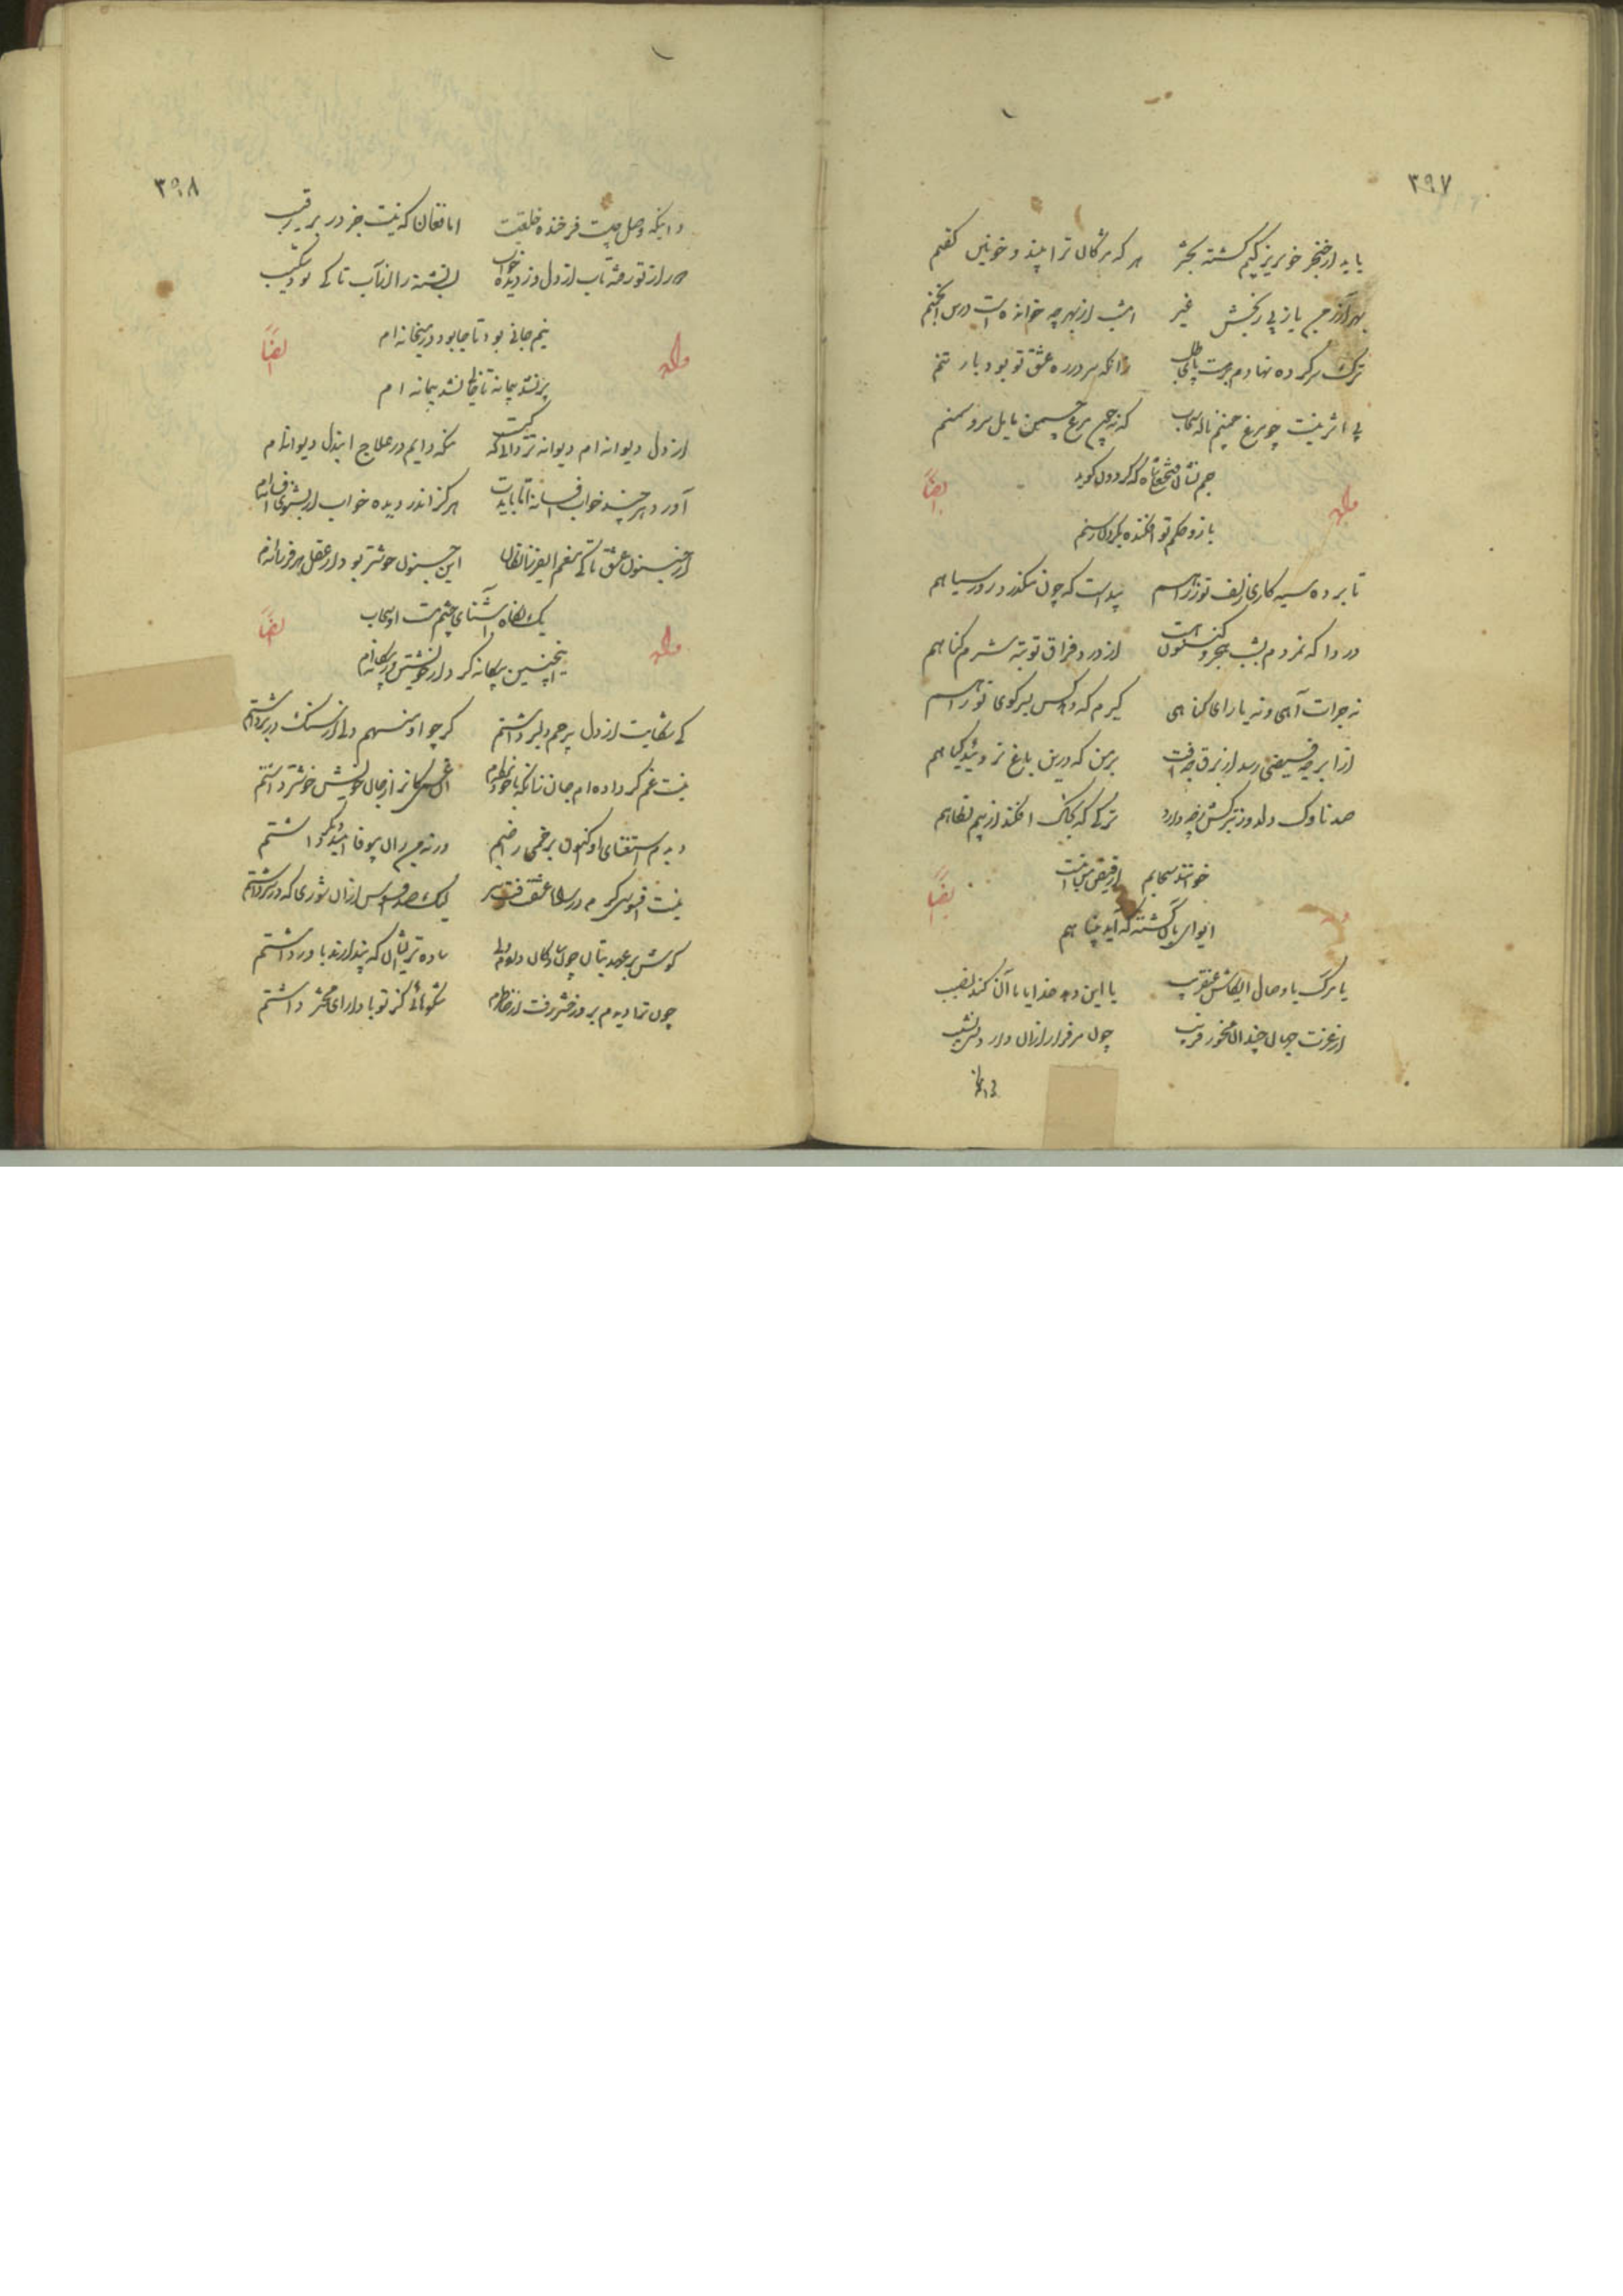 ۳۹۷
باید از خنجر خونریز کیم کشته بحشر هر که مژگان ترا بیند و خونین کفنم
بهر آزردن یار از پی رنجش غیر امشب از بهر چه خوانده است در انجمنم
ترک سر کرده نهادم برهت پای طلب زانکه سر در ره عشق تو بود بار تنم
بی اثر نیست چو مرغ چمنم ناله سحاب که نه چون مرغ چمن مایل سرو سمنم
جم نشان فتحعلیشاه که گردون گوید
ایضاً وله
بازو حکم تو افکنده بگردن رسنم
تا برده سیه کاری زلف تو ز راهم پیداست که چون میگذرد روز سیاهم
دردا که نمردم بشب هجر و کنون است از درد فراق تو بتر شرم گناهم
نه جرات آهی و نه یارای نگاهی گیرم که دهد کس بسر کوی تو راهم
از ابر چه فیضی رسد از برق چه آفت بر من که درین باغ نروئید گیاهم
صد ناوک دلدوز بترکش چه دارد ترکی که بخاک افکند از نیم نگاهم
خواند سحابم از فیض است
ایضاً وله
ایوای بآن گشته که آید به پناهم
یا مرگ یا وصال ایکاش عنقریب یا این دهد خدا یا آن کند نصیب
از عزت جهان چندان مخور فریب چون هر فراز آن دارد دو نشیب
۳۹۸
اما فغان که نیست جز در بر رقیب
ای از تو رفته تاب از دل وز دیده خواب این تشنه را ز آب تا کی بود شکیب
نیم جانی بود تا جا بود در میخانه ام
ایضاً وله
پر نشد پیمانه تا خالی نشد پیمانه ام
از دل دیوانه ام دیوانه تر دانی که کیست منکه دایم در علاج این دل دیوانه ام
آورد هر چند خواب افسانه اما نایدت هرگز اندر دیده خواب ار بشنوی افسانه ام
در جنون عشق تا کی منعم ای فرزانگان این جنون خوشتر بود از عقل هر فرزانه ام
یک نگاه آشنای چشم مست او سحاب
ایضاً وله
اینچنین بیگانه کرد از خویش و بیگانه ام
کی شکایت از دل بیرحم دلبر داشتم گر چو او منهم دلی از سنگ در بر داشتم
نیست غم گر داده ام جان زانکه با خود برده ام آن غمی کانرا ز جان خویش خوشتر داشتم
دیدم استغنای او اکنون بزخمی راضیم ورنه من زان بیوفا امید دیگر داشتم
نیست افسوسی که در راه عشقت رفت سر لیک صد افسوس از آن شوری که در سر داشتم
گوش بر عهد بتان چون سادگان دادم ولی ساده تر ایشان که پندارند باور داشتم
چون ترا دیدم بروز حشر رفت از خاطرم شکوهائی کز تو با دارای محشر داشتم